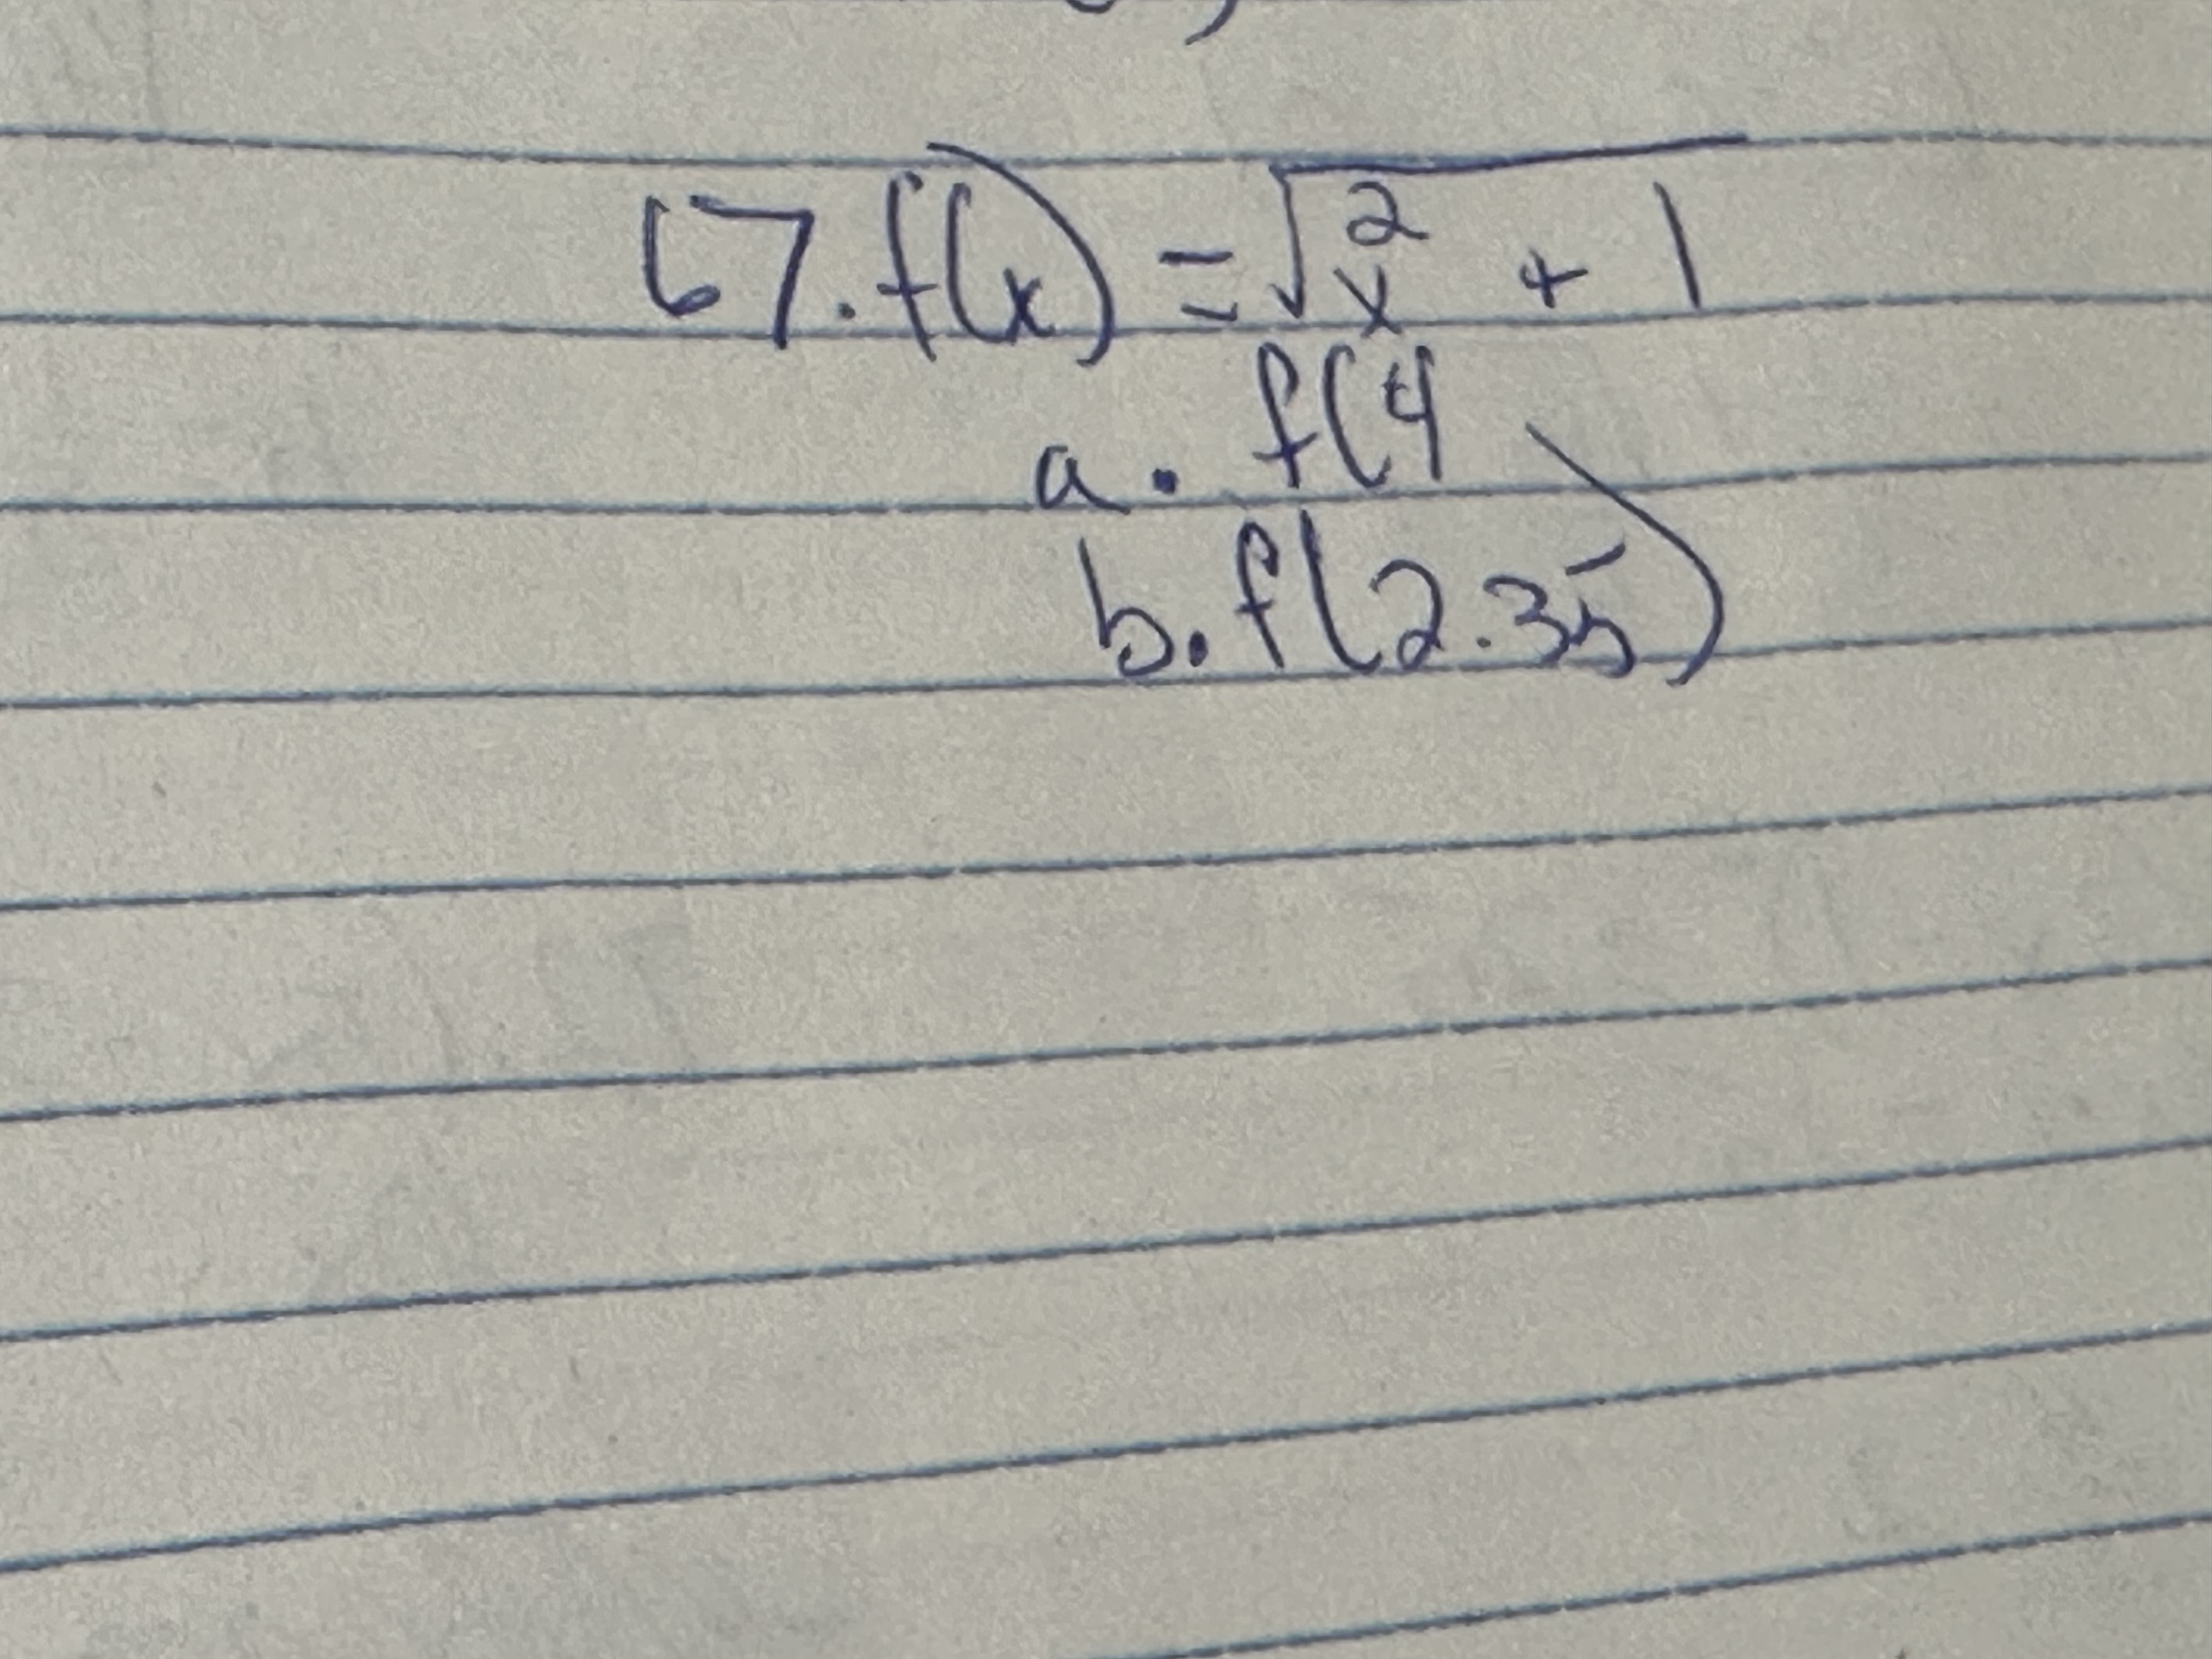 67. f(x) = √x² + 1
a. f(4
b. f(2.35)